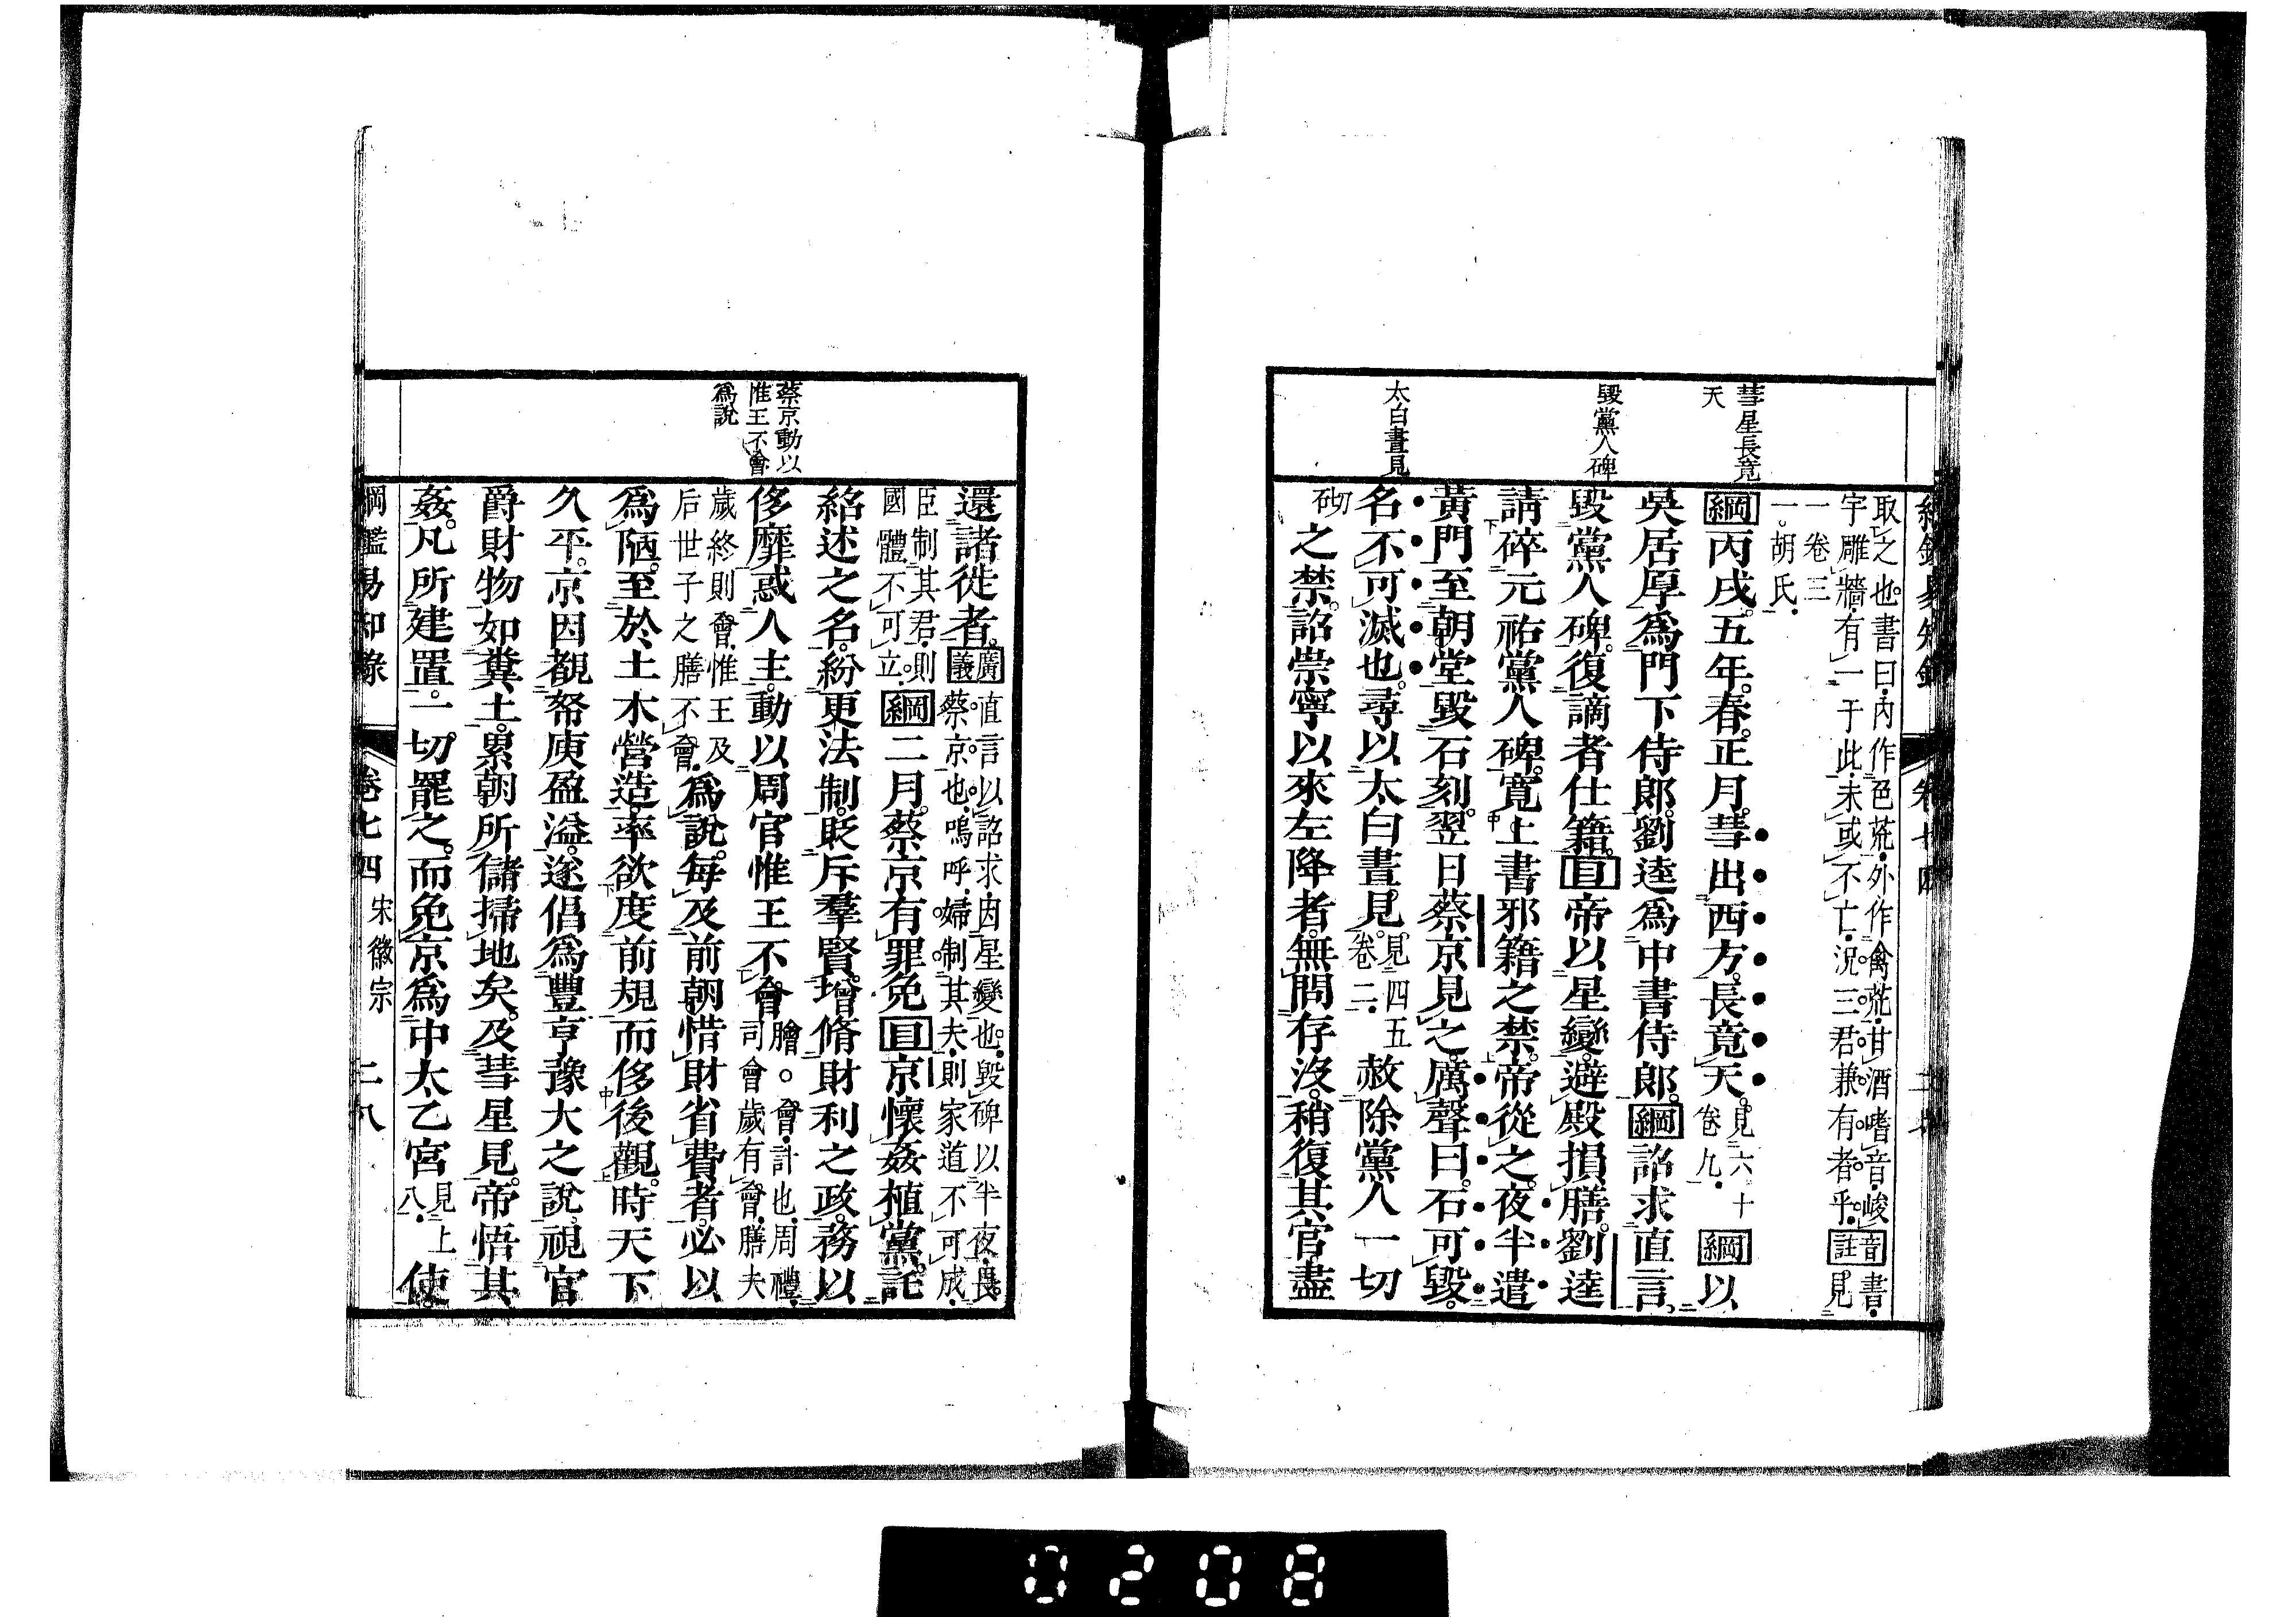 彗星長竟
天
毀黨人碑
太白晝見
取之也書曰內作色荒外作禽荒甘酒嗜音峻
宇雕牆有一于此未或不亡況三君兼有者乎音註書見
一卷三
一胡氏
綱丙戌五年春正月彗出西方長竟天見六十卷九綱以
吳居厚爲門下侍郎劉逵爲中書侍郎綱詔求直言
毀黨人碑復謫者仕籍目帝以星變避殿損膳劉逵
請碎元祐黨人碑寬上書邪籍之禁帝從之夜半遣
黃門至朝堂毀石刻翌日蔡京見之厲聲曰石可毀
名不可滅也尋以太白晝見見四五卷二赦除黨人一切
砌之禁詔崇寧以來左降者無問存沒稍復其官盡
蔡京動以
惟王不會
爲說
還諸徙者廣義直言以詔求因星變也毀碑以半夜畏蔡京也嗚呼婦制其夫則家道不可成
臣制其君則國體不可立綱二月蔡京有罪免目京懷姦植黨託
紹述之名紛更法制貶斥羣賢增脩財利之政務以
侈靡惑人主動以周官惟王不會膾會計也周禮司會歲有會膳夫
歲終則會惟王及后世子之膳不會爲說每及前朝惜財省費者必以
爲陋至於土木營造率欲度前規而侈後觀時天下
久平京因覩帑庾盈溢遂倡爲豐亨豫大之說視官
爵財物如糞土累朝所儲掃地矣及彗星見帝悟其
姦凡所建置一切罷之而免京爲中太乙宮見上八使
綱鑑易知錄 卷七四 宋徽宗 二八
0208